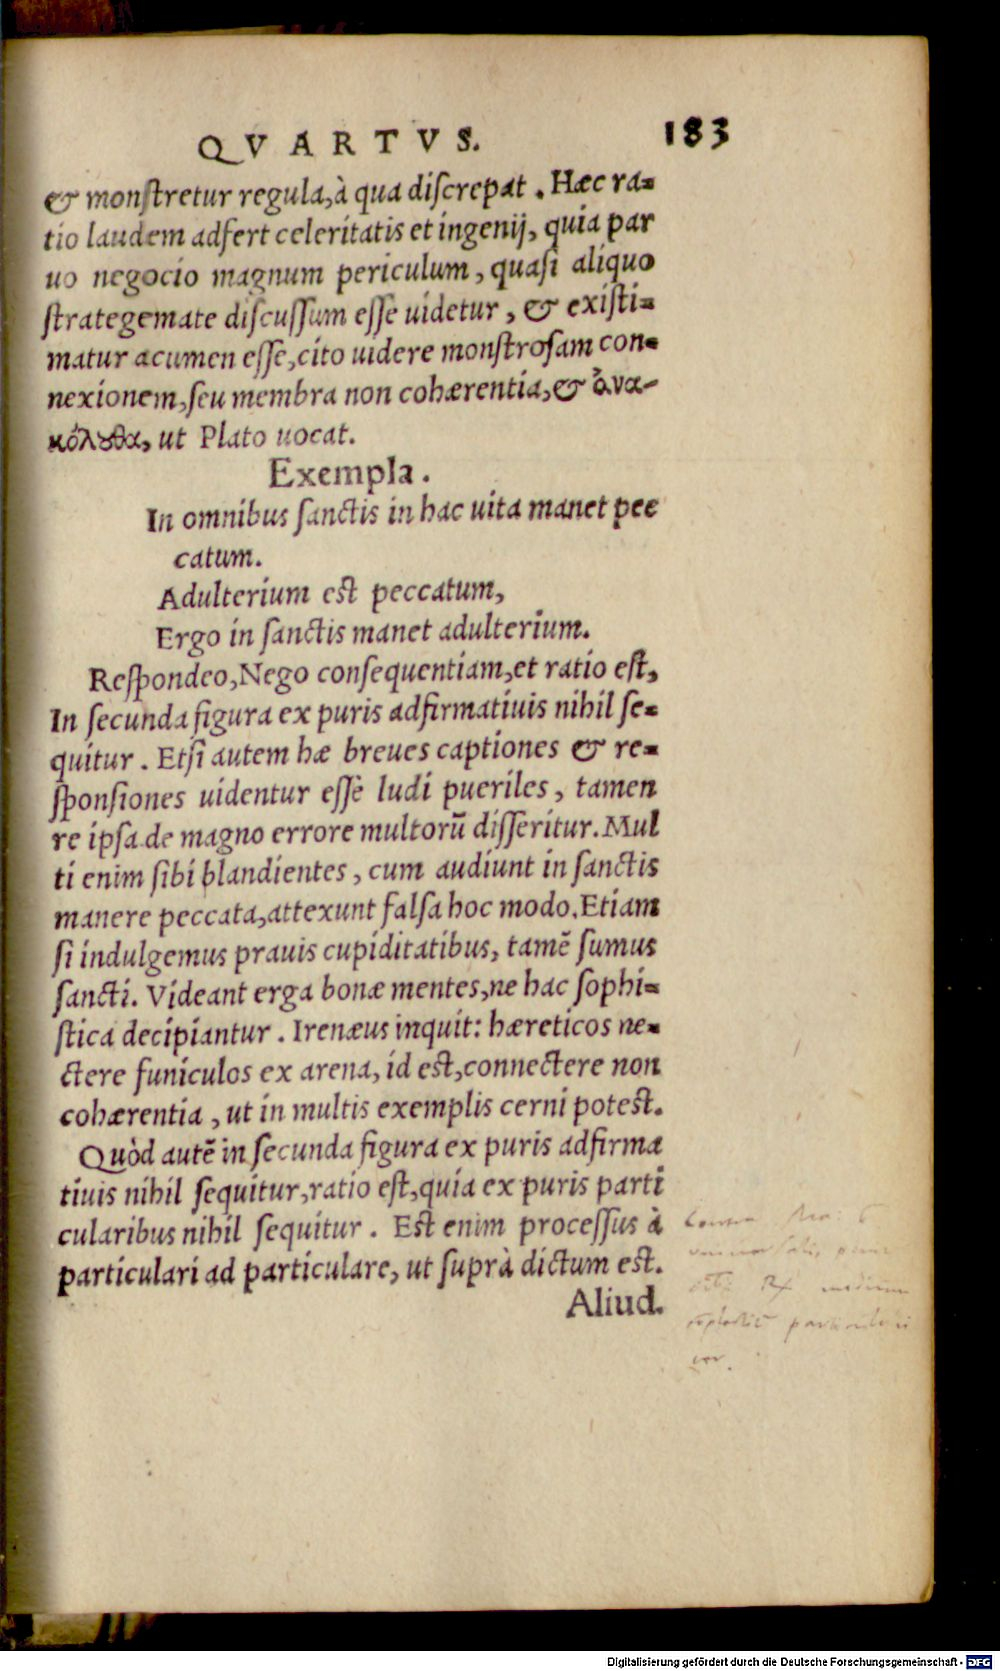 QVARTVS. 183
& monſtretur regula, à qua diſcrepat. Hæc ra-
tio laudem adfert celeritatis et ingenij, quia par
uo negocio magnum periculum, quaſi aliquo
ſtrategemate diſcuſſum eſſe uidetur, & exiſti-
matur acumen eſſe, cito uidere monſtroſam con-
nexionem, ſeu membra non cohærentia, & ἀνα-
κόλȣθα, ut Plato uocat.
Exempla.
In omnibus ſanctis in hac uita manet pec
catum.
Adulterium est peccatum,
Ergo in ſanctis manet adulterium.
Reſpondeo, Nego conſequentiam, et ratio eſt,
In ſecunda figura ex puris adfirmatiuis nihil ſe-
quitur. Etſi autem hæ breues captiones & re-
ſponſiones uidentur eſſe ludi pueriles, tamen
re ipſa de magno errore multorū diſſeritur. Mul
ti enim ſibi blandientes, cum audiunt in ſanctis
manere peccata, attexunt falſa hoc modo. Etiam
ſi indulgemus prauis cupiditatibus, tamē ſumus
ſancti. Videant erga bonæ mentes, ne hac ſophi-
ſtica decipiantur. Irenæus inquit: hæreticos ne-
ctere funiculos ex arena, id est, connectere non
cohærentia, ut in multis exemplis cerni poteſt.
Quòd autē in ſecunda figura ex puris adfirma
tiuis nihil ſequitur, ratio eſt, quia ex puris parti
cularibus nihil ſequitur. Est enim proceſſus à
particulari ad particulare, ut ſuprà dictum est.
Aliud.
Digitalisierung gefördert durch die Deutsche Forschungsgemeinschaft - DFG